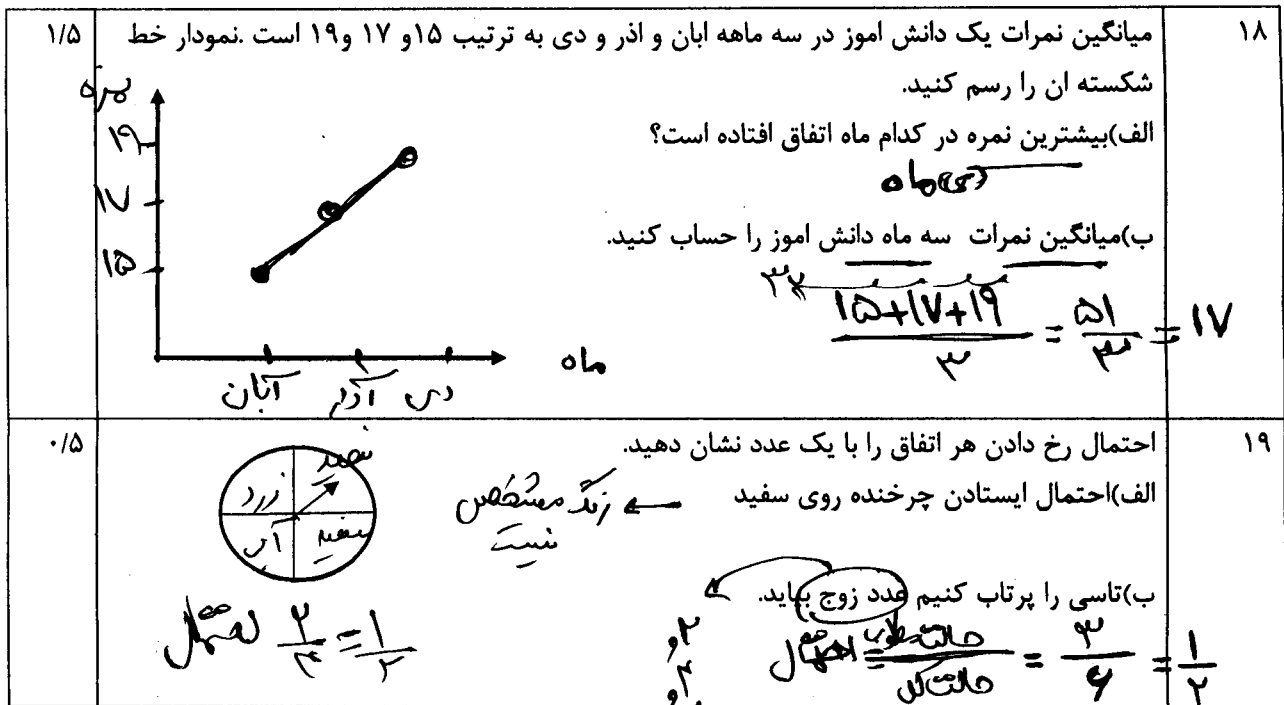 ۱۸
میانگین نمرات یک دانش اموز در سه ماهه ابان و اذر و دی به ترتیب ۱۵و ۱۷ و۱۹ است .نمودار خط
۱/۵
شکسته ان را رسم کنید.
الف)بیشترین نمره در کدام ماه اتفاق افتاده است؟
دی ماه
ب)میانگین نمرات سه ماه دانش اموز را حساب کنید.
۱۵+۱۷+۱۹ / ۳ = ۵۱ / ۳ = ۱۷
نمره
۱۹
۱۷
۱۵
آبان آذر دی
ماه
۱۹
احتمال رخ دادن هر اتفاق را با یک عدد نشان دهید.
۰/۵
الف)احتمال ایستادن چرخنده روی سفید
رنگ مشخص
نیست
زرد سفید
آبی سفید
ب)تاسی را پرتاب کنیم عدد زوج بیاید.
۲و
۴و
احتمال = حالت مطلوب / حالت کل = ۳ / ۶ = ۱ / ۲
احتمال ۲ / ۴ = ۱ / ۲